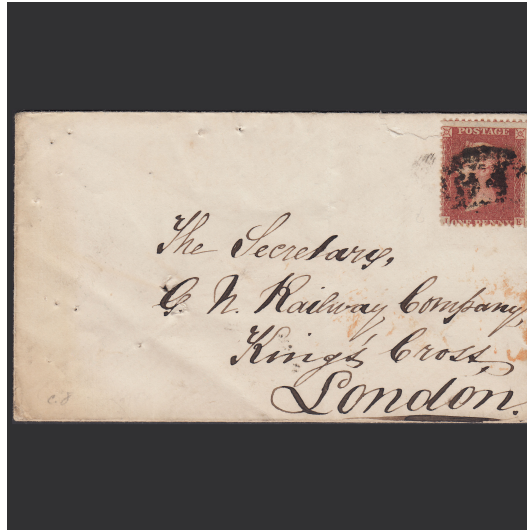 POSTAGE
ONE PENNY
The Secretary,
G. N. Railway Company,
King's Cross,
London.